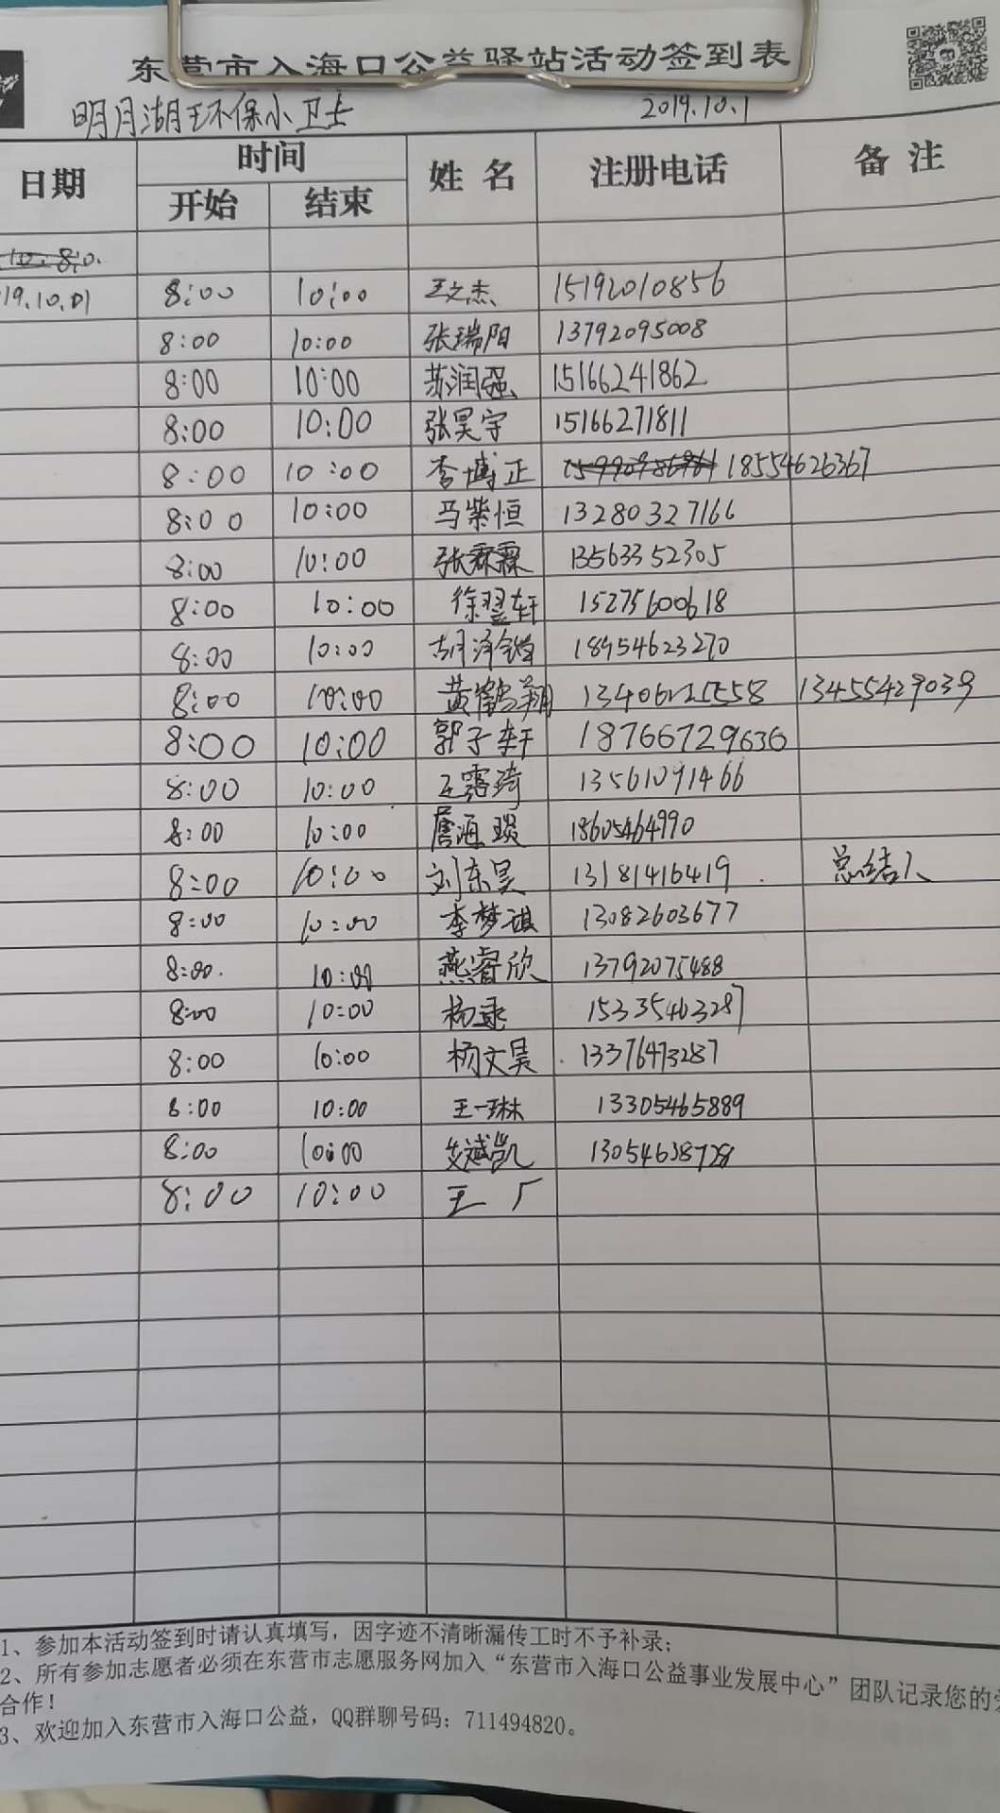 东营市入海口公益驿站活动签到表
明月湖环保小卫士 2019.10.1
日期 时间 姓名 注册电话 备注
开始 结束
10.8.0.
19.10.01 8:00 10:00 王文杰 15192010856
8:00 10:00 张瑞阳 13792095008
8:00 10:00 苏润强 15166241862
8:00 10:00 张昊宇 15166271811
8:00 10:00 李博正 18554626367
8:00 10:00 马紫恒 13280327166
8:00 10:00 张霖霖 13563352305
8:00 10:00 徐翌轩 15275600618
8:00 10:00 胡泽锴 18954623270
8:00 10:00 黄鹤翔 13455429039
8:00 10:00 郭子轩 18766729636
8:00 10:00 王露琦 13561091466
8:00 10:00 唐海琰 18605464990
8:00 10:00 刘东昊 13181416419 总结人
8:00 10:00 李梦琪 13082603677
8:00. 10:00 燕睿欣 13792075488
8:00 10:00 杨 15335463287
8:00 10:00 杨文昊 13376473287
8:00 10:00 王一琳 13305465889
8:00 10:00 斌凯 13054638728
8:00 10:00 王厂
1、参加本活动签到时请认真填写，因字迹不清晰漏传工时不予补录；
2、所有参加志愿者必须在东营市志愿服务网加入“东营市入海口公益事业发展中心”团队记录您的
合作！
3、欢迎加入东营市入海口公益，QQ群聊号码：711494820。